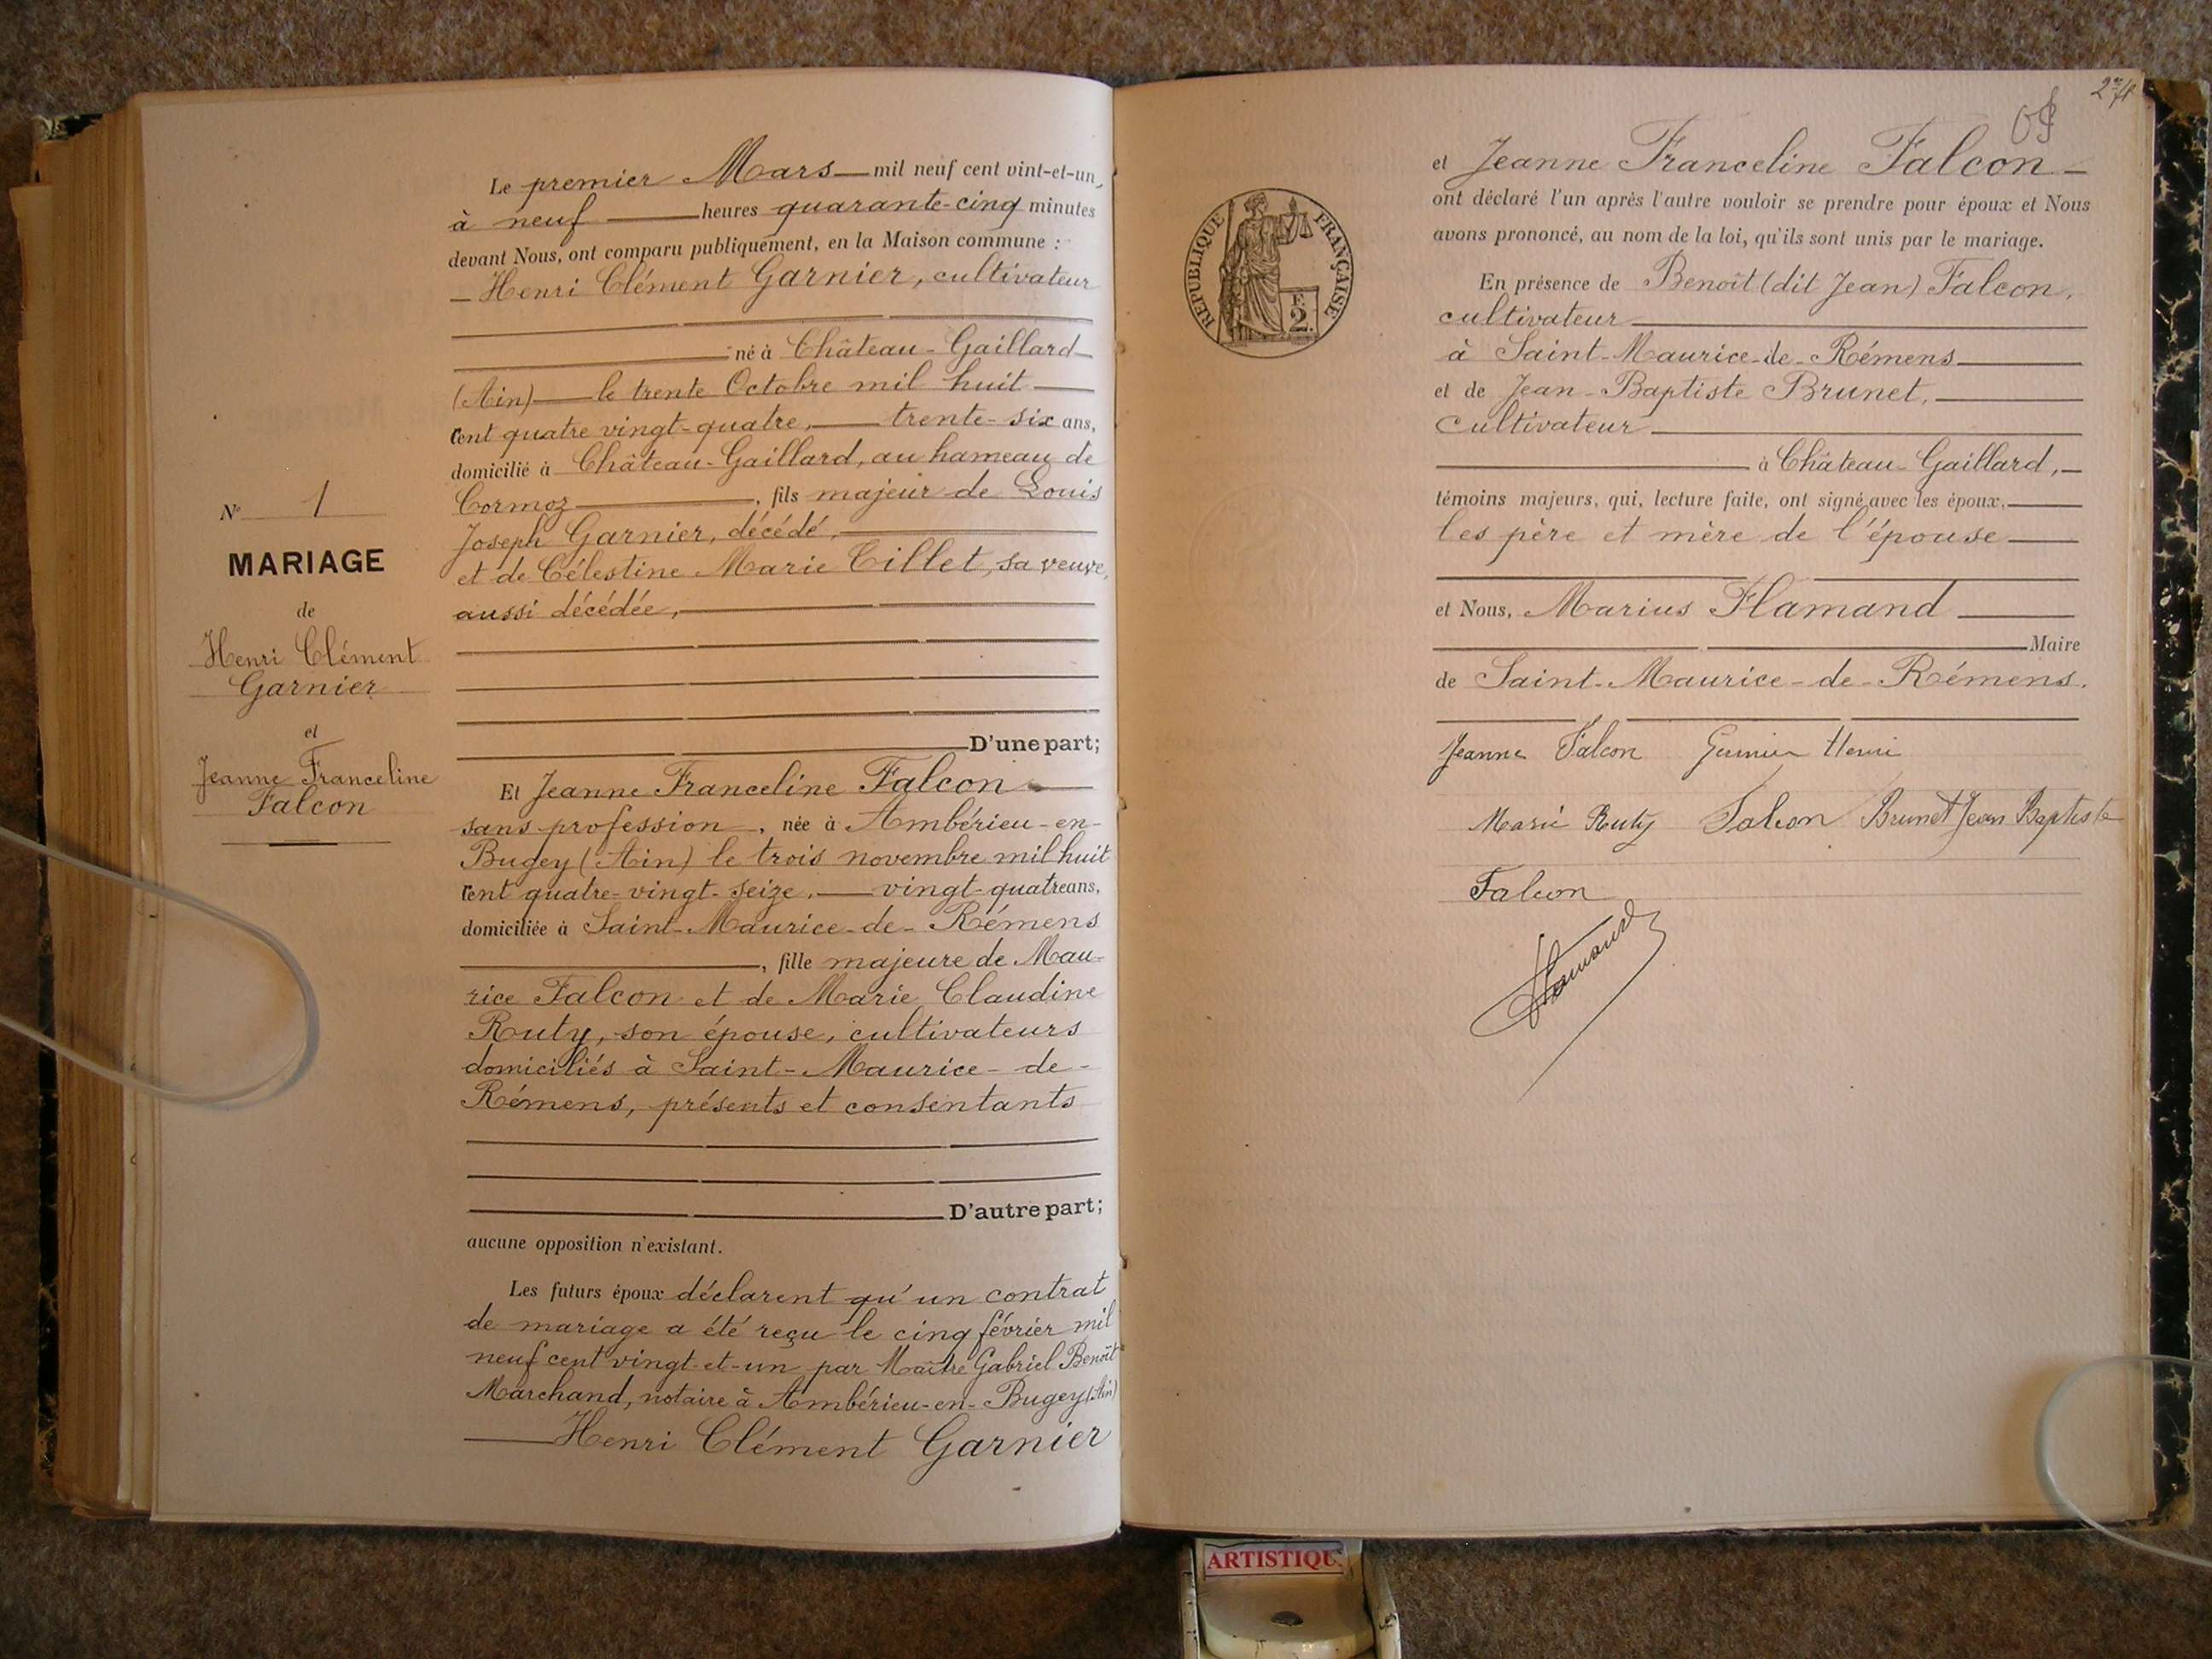 N° 1
MARIAGE
de
Henri Clément
Garnier
et
Jeanne Franceline
Falcon
Le premier Mars mil neuf cent vint-et-un,
à neuf heures quarante-cinq minutes
devant Nous, ont comparu publiquement, en la Maison commune :
Henri Clément Garnier, cultivateur
né à Château-Gaillard
(Ain) le trente Octobre mil huit
cent quatre vingt-quatre, trente-six ans,
domicilié à Château-Gaillard, au hameau de
Cormoz, fils majeur de Louis
Joseph Garnier, décédé,
et de Célestine Marie Tillet, sa veuve,
aussi décédée,
D'une part;
Et Jeanne Franceline Falcon
sans profession, née à Ambérieu-en-
Bugey (Ain) le trois novembre mil huit
cent quatre-vingt-seize, vingt-quatre ans,
domiciliée à Saint-Maurice-de-Rémens
, fille majeure de Mau-
rice Falcon et de Marie Claudine
Ruty, son épouse, cultivateurs
domiciliés à Saint-Maurice-de-
Rémens, présents et consentants
D'autre part;
aucune opposition n'existant.
Les futurs époux déclarent qu'un contrat
de mariage a été reçu le cinq février mil
neuf cent vingt-et-un par Maître Gabriel Benoît
Marchand, notaire à Ambérieu-en-Bugey (Ain)
Henri Clément Garnier
REPUBLIQUE FRANÇAISE
F.
2.
et Jeanne Franceline Falcon
ont déclaré l'un après l'autre vouloir se prendre pour époux et Nous
avons prononcé, au nom de la loi, qu'ils sont unis par le mariage.
En présence de Benoît (dit Jean) Falcon,
cultivateur
à Saint-Maurice-de-Rémens
et de Jean-Baptiste Brunet,
cultivateur
à Château-Gaillard,
témoins majeurs, qui, lecture faite, ont signé avec les époux,
les père et mère de l'épouse
et Nous, Marius Flamand
Maire
de Saint-Maurice-de-Rémens.
Jeanne Falcon Garnier Henri
Marie Ruty Falcon Brunet Jean Baptiste
Falcon
Flamand
ARTISTIQU